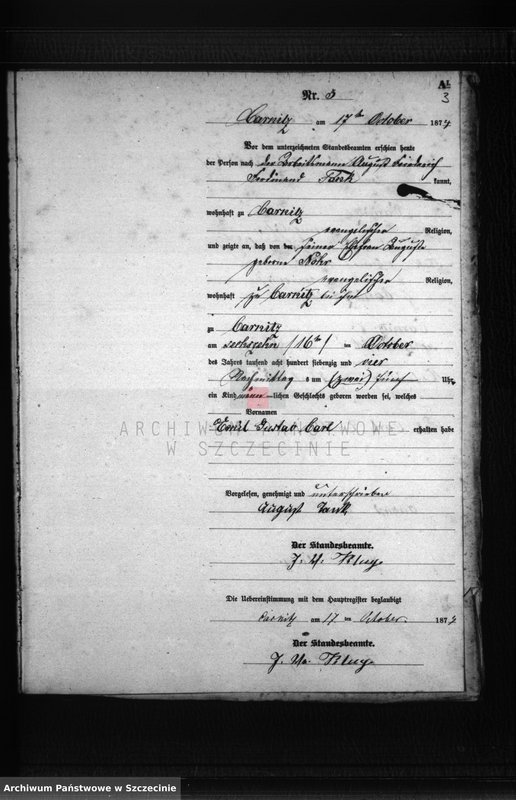 A1.
3
Nr. 3
Carnitz am 17ten October 1874
Vor dem unterzeichneten Standesbeamten erschien heute
der Person nach der Arbeitsmann August Friederich
Ferdinand Tank kannt,
wohnhaft zu Carnitz
evangelischer Religion,
und zeigte an, daß von der seiner Ehefrau Auguste
geborne Rohr
evangelischer Religion,
wohnhaft zu Carnitz bei ihm
zu Carnitz
am sechszehn /16ten/ ten October
des Jahres tausend acht hundert siebenzig und vier
Nachmittag s um (zwei) fünf Uhr
ein Kind männ-lichen Geschlechts geboren worden sei, welches
Vornamen
Emil Gustav Carl erhalten habe
ARCHIWUM PAŃSTWOWE
W SZCZECINIE
Vorgelesen, genehmigt und unterschrieben
August Tank
Der Standesbeamte.
Klug
Die Uebereinstimmung mit dem Hauptregister beglaubigt
Carnitz am 17 ten October 1874
Der Standesbeamte.
Klug
Archiwum Państwowe w Szczecinie